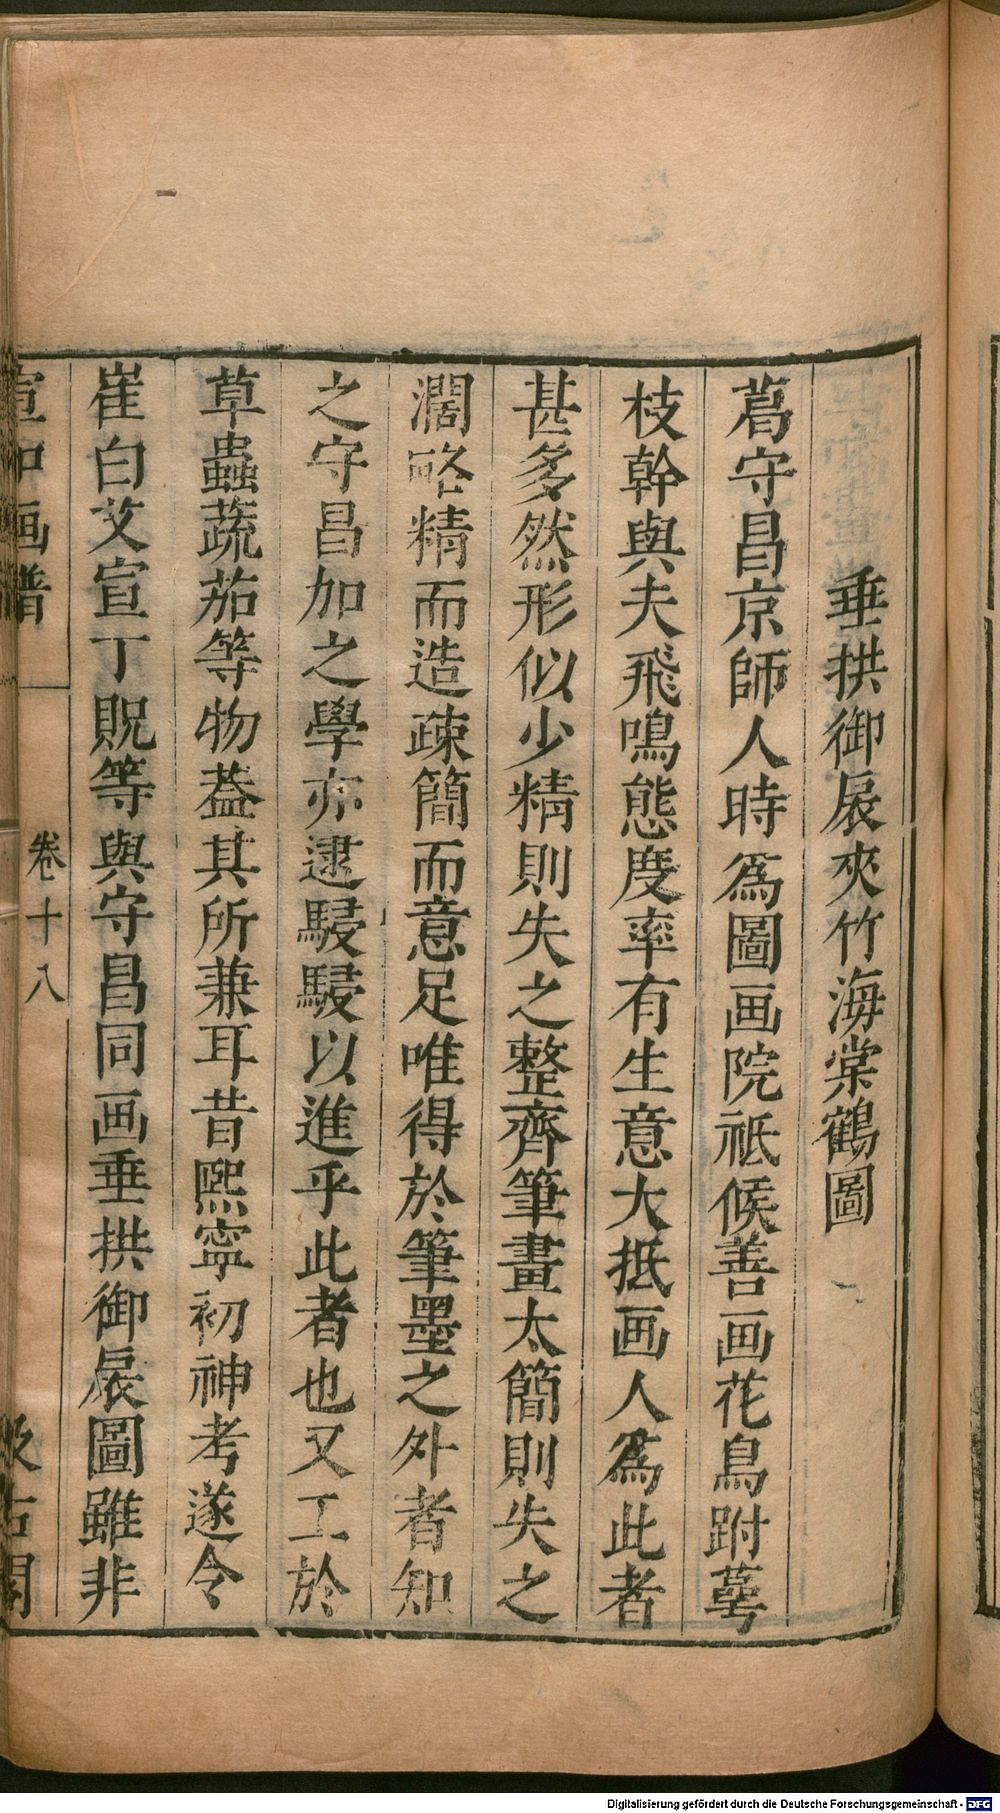 垂拱御扆夾竹海棠鶴圖一
葛守昌京師人時爲圖画院祗候善画花鳥跗萼
枝幹與夫飛鳴態度率有生意大抵画人爲此者
甚多然形似少精則失之整齊筆畫太簡則失之
濶略精而造疎簡而意足唯得於筆墨之外者知
之守昌加之學亦逮駸駸以進乎此者也又工於
草蟲蔬茄等物葢其所兼耳昔熈寧初神考遂令
崔白艾宣丁貺等與守昌同画垂拱御扆圖雖非
宣和画譜
卷十八
汲古閣
Digitalisierung gefördert durch die Deutsche Forschungsgemeinschaft - DFG